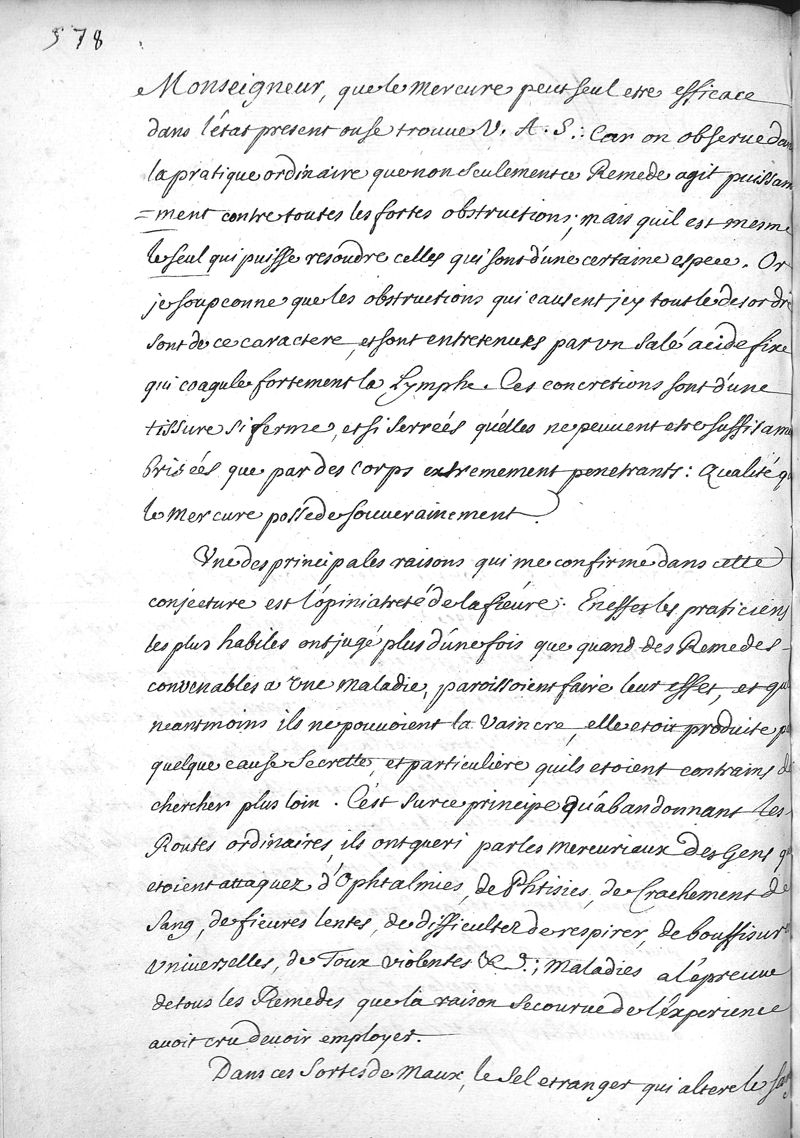 578
Monseigneur, que le mercure peut seul etre efficace
dans l'état present ou se trouve V. A. S.: Car on observe dan
la pratique ordinaire que non seulement ce Remede agit puissam
=ment contre toutes les fortes obstructions; mais qu'il est mesme
le seul qui puisse resoudre celles qui sont d'une certaine espece. Or
je soupconne que les obstructions qui causent jcy tout le desordre
sont de ce caractere, et sont entretenues par un salé acide fixe
qui coagule fortement la Lymphe. Ces concretions sont d'une
tissure si ferme, et si serrées qu'elles ne peuvent etre suffisam
brisées que par des corps extremement penetrants: Qualité q
le mercure possede souverainement.
Vne des principales raisons qui me confirme dans cette
conjecture est l'opiniatreté de la fievre. En effet les praticiens
les plus habiles ont jugé plus d'une fois que quand des Remedes
convenables a Vne maladie, paroissoient faire leur effet, et que
neantmoins ils ne pouvoient la vaincre, elle etoit produite p
quelque cause Secrette, et particuliere qu'ils etoient contrains de
chercher plus loin. C'est sur ce principe qu'abandonnant les
Routes ordinaires, ils ont gueri par les mercuriaux des Gens q
etoient attaquez d'Ophtalmies, de Phtisies, de Crachement de
Sang, de fievres lentes, de difficultez de respirer, de bouffisure
Vniverselles, de Toux violentes &c.; maladies a l'épreuve
de tous les Remedes que la raison secourue de l'experience
avoit cru devoir employer.
Dans ces sortes de maux, le Sel etranger qui altere le sa